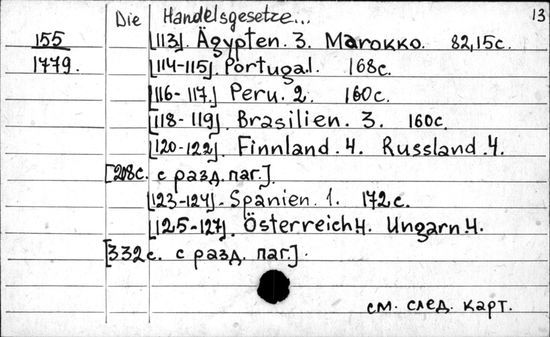 Die Handelsgesetze... 13
155 [113]. Ägypten. 3. Marokko. 82,15с.
1779. [114-115]. Portugal. 168с.
[116-117.] Peru. 2. 160с.
[118-119]. Brasilien. 3. 160с.
[120-122]. Finnland. 4. Russland. 4.
[208с. с разд. паг.].
[123-124]. Spanien. 1. 172с.
[125-127]. Österreich 4. Ungarn. 4.
[332с. с разд. паг.].
см. след. карт.